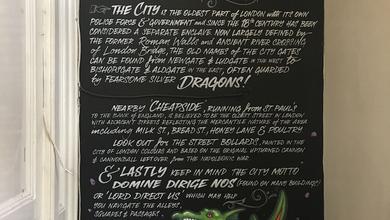 THE CITY IS THE OLDEST PART OF LONDON WITH ITS OWN
POLICE FORCE & GOVERNMENT AND SINCE THE 18TH CENTURY HAS BEEN
CONSIDERED A SEPARATE ENCLAVE NOW LARGELY DEFINED by
THE FORMER Roman Walls AND ANCIENT RIVER CROSSING
of London Bridge, THE OLD NAMES OF THE CITY GATES
CAN BE FOUND FROM NEWGATE & LUDGATE IN THE WEST TO
BISHOPSGATE & ALDGATE IN THE EAST, OFTEN GUARDED
by FEARSOME SILVER DRAGONS!
NEARBY CHEAPSIDE, RUNNING FROM ST PAUL'S
TO THE BANK OF ENGLAND, IS BELIEVED TO BE THE OLDEST STREET IN LONDON
WITH ADJACENT STREETS REFLECTING THE MERCANTILE NATURE OF THE AREA
including MILK ST, BREAD ST, HONEY LANE & POULTRY
LOOK OUT FOR THE STREET BOLLARDS, PAINTED IN THE
CITY OF LONDON COLOURS AND BASED ON THE ORIGINAL UPTURNED CANNON
& CANNONBALL LEFT OVER FROM THE NAPOLEONIC WAR
& LASTLY KEEP IN MIND THE CITY MOTTO
DOMINE DIRIGE NOS (FOUND ON MANY BUILDINGS)
OR 'LORD DIRECT US' WHICH MAY HELP
YOU NAVIGATE THE ALLEYS,
SQUARES & PASSAGES.